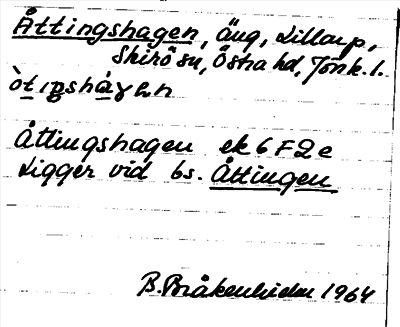 Åttingshagen, äng, Lillarp,
Skirö sn, Östra hd, Jönk. l.
Åttingshagen ek 6F2e
Ligger vid bs. Åttingen
B. Bråkenhielm 1964